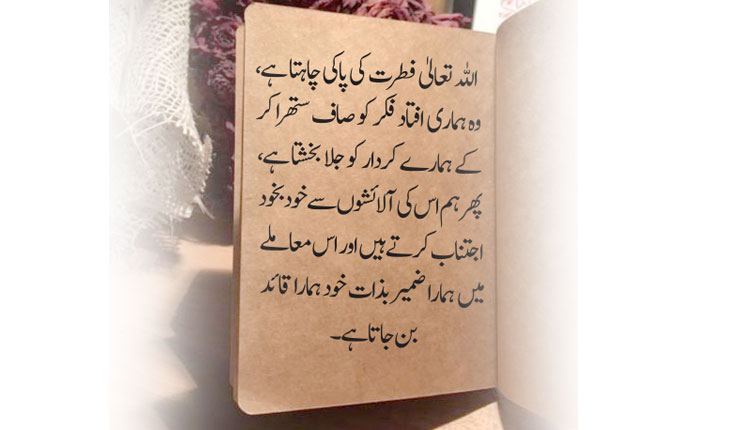 اللہ تعالیٰ فطرت کی پاکی چاہتا ہے،
وہ ہماری افتاد فکر کو صاف ستھرا کر
کے ہمارے کردار کو جلا بخشتا ہے،
پھر ہم اس کی آلائشوں سے خود بخود
اجتناب کرتے ہیں اور اس معاملے
میں ہمارا ضمیر بذات خود ہمارا قائد
بن جاتا ہے۔